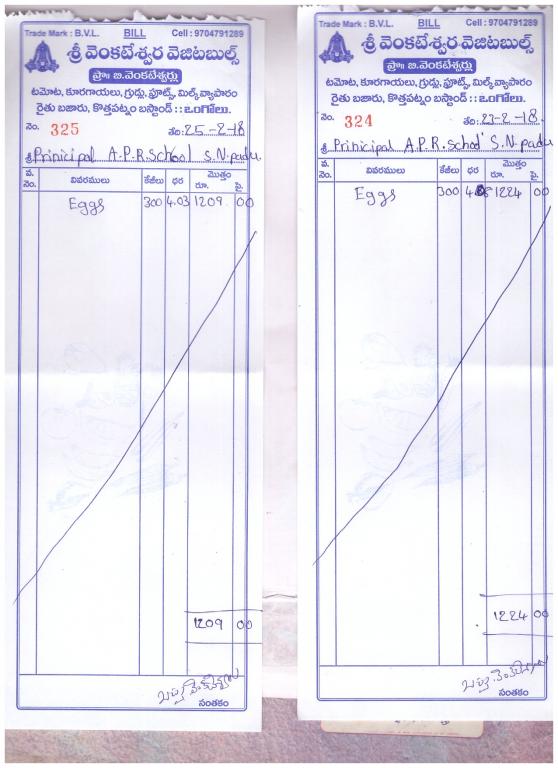 Trade Mark : B.V.L. BILL Cell : 9704791289
శ్రీ వెంకటేశ్వర వెజిటబుల్స్
ప్రొ॥ బి.వెంకటేశ్వర్లు
టమోట, కూరగాయలు, గ్రుడ్లు, ఫ్రూట్స్, మిల్క్ వ్యాపారం
రైతు బజారు, కొత్తపట్నం బస్టాండ్ : : ఒంగోలు.
నెం. 325 తేది: 25-2-18
శ్రీ Prinicipal A.P.R.School S.N.padu
వ. నెం. వివరములు కేజీలు ధర మొత్తం రూ. పై.
Eggs 300 4.03 1209 00
1209 00
సంతకం
Trade Mark : B.V.L. BILL Cell : 9704791289
శ్రీ వెంకటేశ్వర వెజిటబుల్స్
ప్రొ॥ బి.వెంకటేశ్వర్లు
టమోట, కూరగాయలు, గ్రుడ్లు, ఫ్రూట్స్, మిల్క్ వ్యాపారం
రైతు బజారు, కొత్తపట్నం బస్టాండ్ : : ఒంగోలు.
నెం. 324 తేది: 23-2-18.
శ్రీ Prinicipal A.P.R.School S.N.padu
వ. నెం. వివరములు కేజీలు ధర మొత్తం రూ. పై.
Eggs 300 1224 00
1224 00
సంతకం